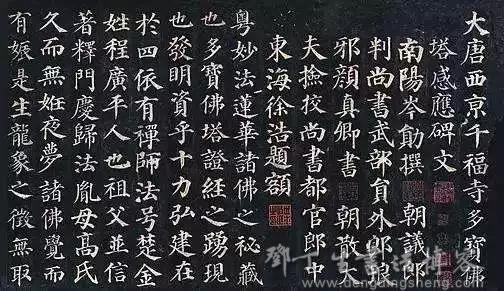 大唐西京千福寺多寶佛
塔感應碑文
南陽岑勛撰 朝議郎
判尚書武部員外郎琅
邪顏真卿書 朝散大
夫撿挍尚書都官郎中
東海徐浩題額
粵妙法蓮華諸佛之秘藏
也多寶佛塔證經之踴現
也發明資乎十力弘建在
於四依有禪師法号楚金
姓程廣平人也祖父並信
著釋門慶歸法胤母高氏
久而無妊夜夢諸佛覺而
有娠是生龍象之徵無取
dengdingsheng.com